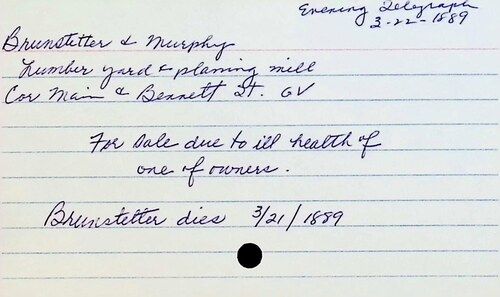 Evening Telegraph
3-22-1889
Brunstetter & Murphy
Lumber yard & planing mill
Cor Main & Bennett St. GV
For Sale due to ill health of
one of owners.
Brunstetter dies 3/21/1889